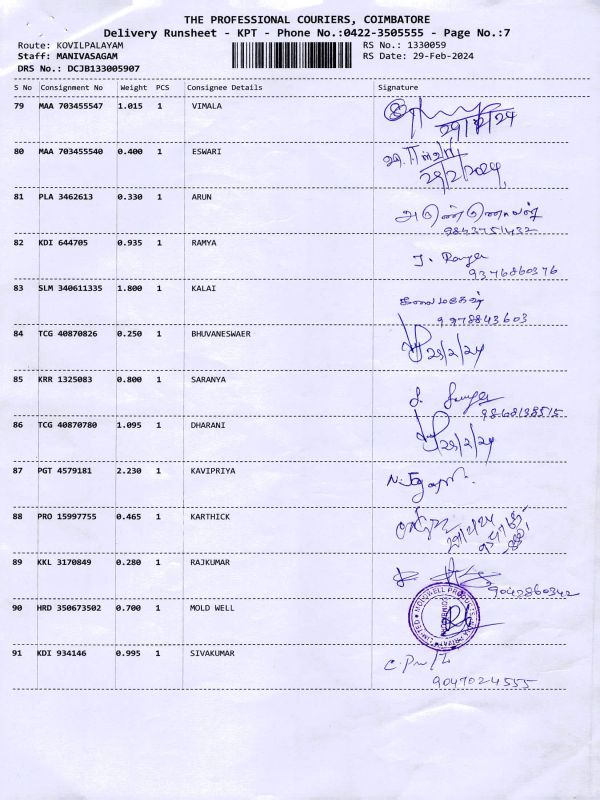 THE PROFESSIONAL COURIERS, COIMBATORE
Delivery Runsheet - KPT - Phone No.:0422-3505555 - Page No.:7
Route: KOVILPALAYAM RS No.: 1330059
Staff: MANIVASAGAM RS Date: 29-Feb-2024
DRS No.: DCJB133005907
S No Consignment No Weight PCS Consignee Details Signature
79 MAA 703455547 1.015 1 VIMALA
29/2/24
80 MAA 703455540 0.400 1 ESWARI
29/2/2024
81 PLA 3462613 0.330 1 ARUN
9843751432
82 KDI 644705 0.935 1 RAMYA
J. Ramya
9376860376
83 SLM 340611335 1.800 1 KALAI
9978843603
84 TCG 40870826 0.250 1 BHUVANESWAER
29/2/24
85 KRR 1325083 0.800 1 SARANYA
9868138515
86 TCG 40870780 1.095 1 DHARANI
29/2/24
87 PGT 4579181 2.230 1 KAVIPRIYA
88 PRO 15997755 0.465 1 KARTHICK
89 KKL 3170849 0.280 1 RAJKUMAR
9042860342
90 HRD 350673502 0.700 1 MOLD WELL
91 KDI 934146 0.995 1 SIVAKUMAR
9047024555